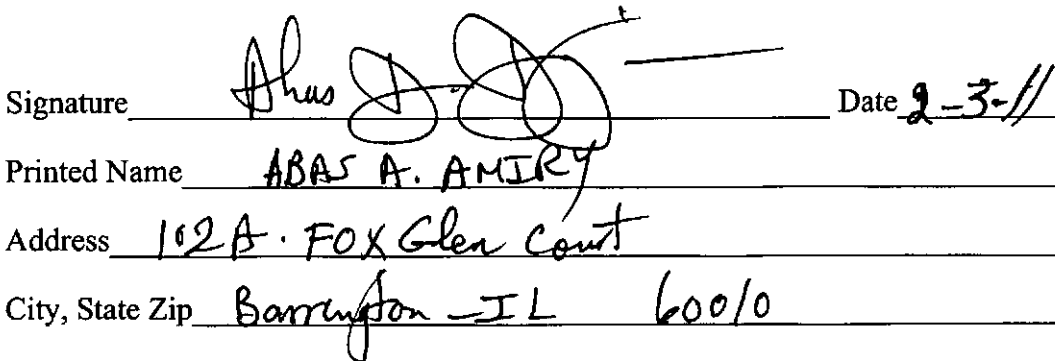 Signature Date 2-3-11
Printed Name ABAS A. AMIRY
Address 102 A. FOX Glen Court
City, State Zip Barrington - IL 60010